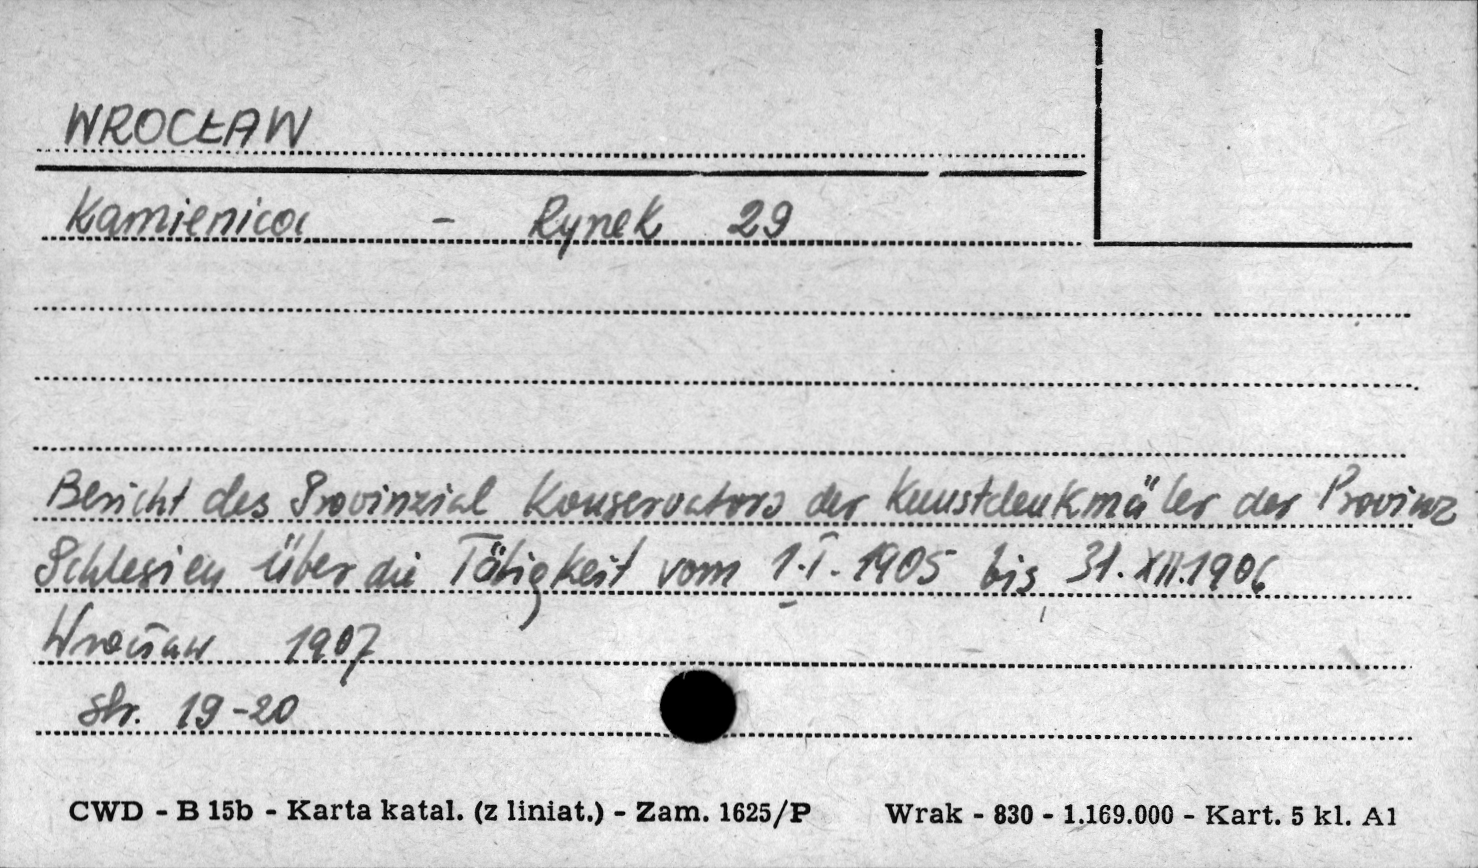 WROCŁAW
Kamienica - Rynek 29
Bericht des Provinzial Konservators der Kunstdenkmäler der Provinz
Schlesien über die Tätigkeit vom 1.I.1905 bis 31.XII.1906
Wrocław 1907
str. 19-20
CWD - B 15b - Karta katal. (z liniat.) - Zam. 1625/P Wrak - 830 - 1.169.000 - Kart. 5 kl. A1